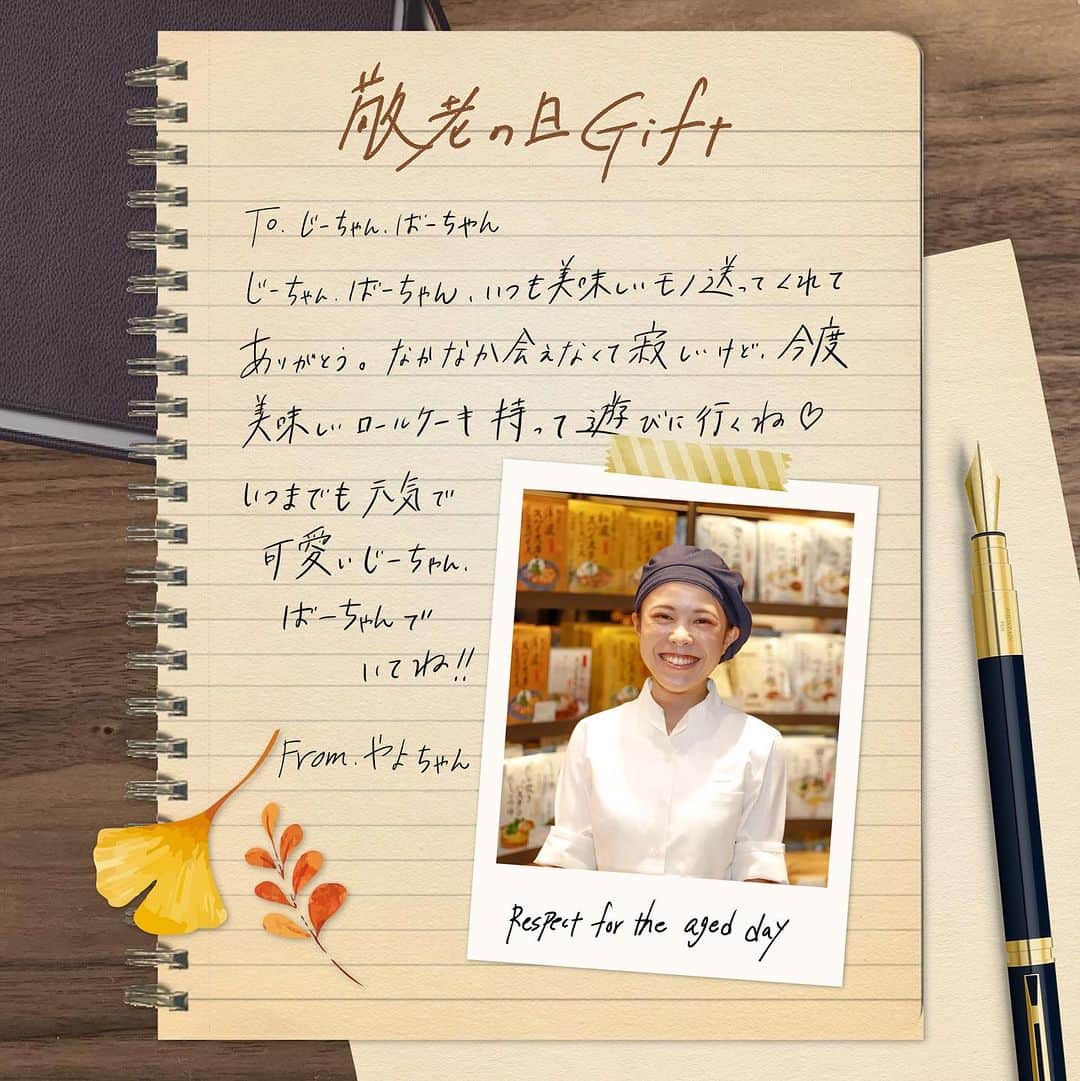 敬老の日Gift
To. じーちゃん.ばーちゃん
じーちゃん.ばーちゃん、いつも美味しいモノ送ってくれて
ありがとう。なかなか会えなくて寂しいけど、今度
美味しいロールケーキ持って遊びに行くね♡
いつまでも元気で
可愛いじーちゃん、
ばーちゃんで
いてね!!
From.やよちゃん
Respect for the aged day